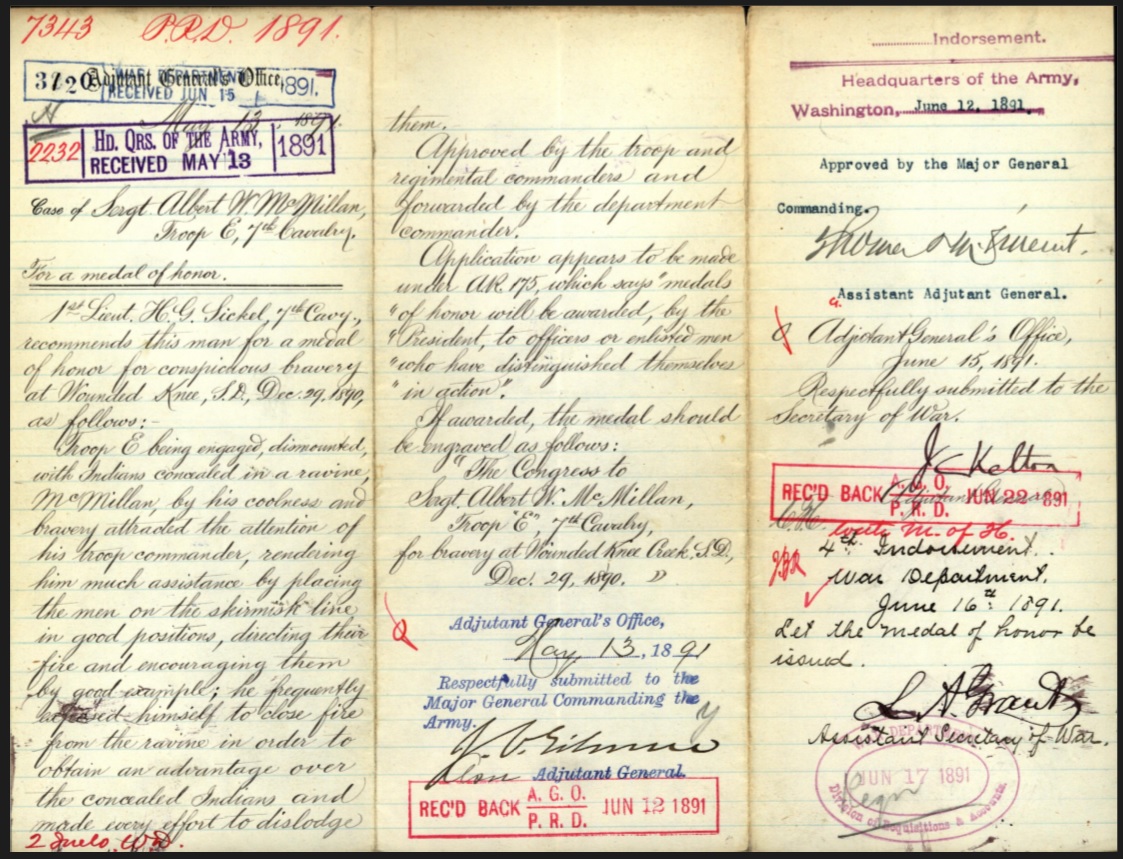 7343 P.R.D. 1891.
3120 Adjutant General's Office,
WAR DEPARTMENT
RECEIVED JUN 15 1891.
May 13 1891.
2232 HD. QRS. OF THE ARMY,
RECEIVED MAY 13 1891
Case of Sergt. Albert W. McMillan,
Troop E, 7th Cavalry.
For a medal of honor.
1st Lieut. H. G. Sickel, 7th Cavy.,
recommends this man for a medal
of honor for conspicuous bravery
at Wounded Knee, S.D., Dec. 29, 1890,
as follows:-
Troop E being engaged, dismounted,
with Indians concealed in a ravine,
McMillan, by his coolness and
bravery attracted the attention of
his troop commander, rendering
him much assistance by placing
the men on the skirmish line
in good positions, directing their
fire and encouraging them
by good example; he frequently
exposed himself to close fire
from the ravine in order to
obtain an advantage over
the concealed Indians and
made every effort to dislodge
2
them.
Approved by the troop and
regimental commanders and
forwarded by the department
commander.
Application appears to be made
under A.R. 175, which says "medals
"of honor will be awarded, by the
"President, to officers or enlisted men
"who have distinguished themselves
"in action".
If awarded, the medal should
be engraved as follows:
"The Congress to
Sergt. Albert W. McMillan,
Troop "E" 7th Cavalry,
for bravery at Wounded Knee Creek, S.D.,
Dec. 29, 1890."
Adjutant General's Office,
May 13, 1891
Respectfully submitted to the
Major General Commanding the
Army.
Adjutant General.
REC'D BACK A. G. O. P. R. D. JUN 12 1891
Indorsement.
Headquarters of the Army,
Washington, June 12, 1891.
Approved by the Major General
Commanding.
Assistant Adjutant General.
Adjutant General's Office,
June 15, 1891.
Respectfully submitted to the
Secretary of War.
J C Kelton
Adjutant General
REC'D BACK A. G. O. P. R. D. JUN 22 891
M. of H.
4th Indorsement.
War Department,
June 16th 1891.
Let the medal of honor be
issued.
L A Grant
Assistant Secretary of War.
WAR DEPARTMENT
JUN 17 1891
Division of Requisitions & Accounts.